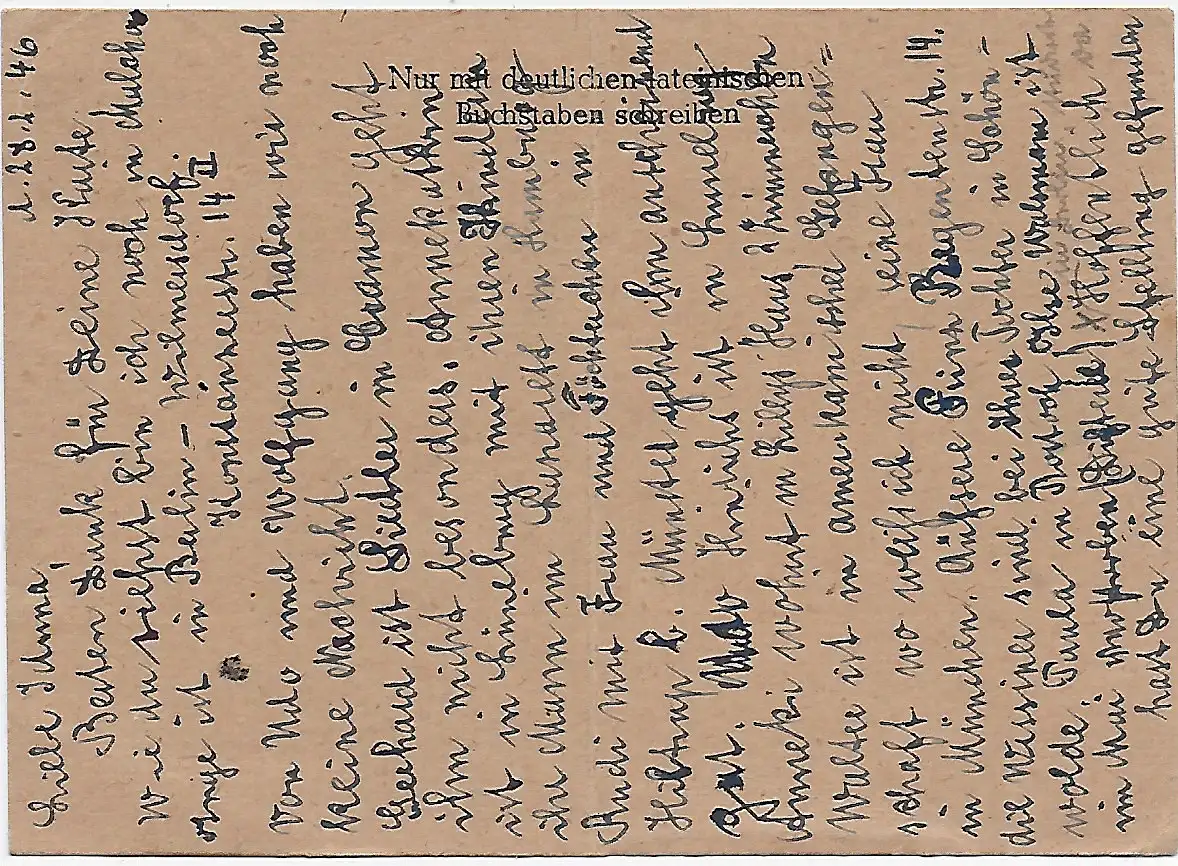 Nur mit deutlichen lateinischen
Buchstaben schreiben
d. 28.2.46
Liebe Idunna!
Besten Dank für Deine Karte
Wie du siehst bin ich noch in Malchow
Antje ist in Berlin – Wilmersdorf.
Konstanzerstr. 14 II
Von Udo und Wolfgang haben wir noch
keine Nachricht.
Gerhard ist Lieber in Cramon geht
ihm nicht besonders. Annekatrin
ist in Lüneburg mit ihren Kindern
ihr Mann im Lazarett in Hamburg
Rudi mit Frau und Töchterchen in
Hiltrup b. Münster geht ihm anscheinend
gut. Udo Hinrichs ist in Lüneburg
Anneki wohnt in Lillys Haus 2 Zimmerchen
Walter ist in amerikanischer Gefangen=
schaft wo weiß ich nicht, seine Frau
in München. Äußere Prinz Regentenstr. 14.
die Wissiner sind bei ihrer Tochter in Schön=
wolde. Paula in Rostock Ilse Walmann ist
im Mai gestorben (Giftpille) Hoffentlich
hast Du eine gute Stellung gefunden